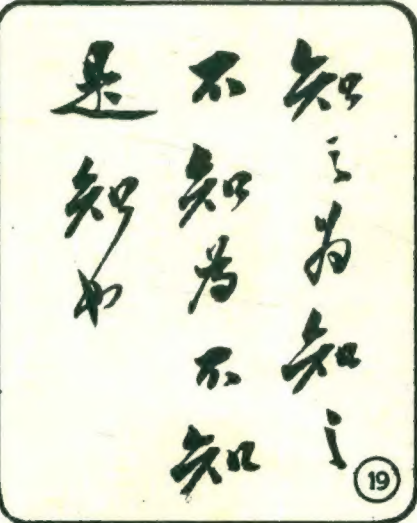 知之为知之
不知为不知
是知也
19